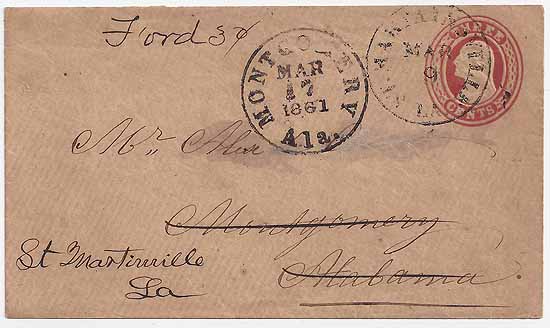 Ford 3¢
MONTGOMERY
MAR
17
1861
Ala.
ST. MARTINSVILLE
MAR
9
LA
THREE
CENTS
Mr. Alex
Montgomery
Alabama
St Martinville
La